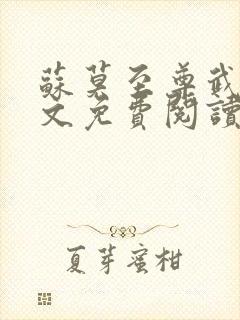 蘇莫至尊武
文免費閱讀
夏芽蜜柑